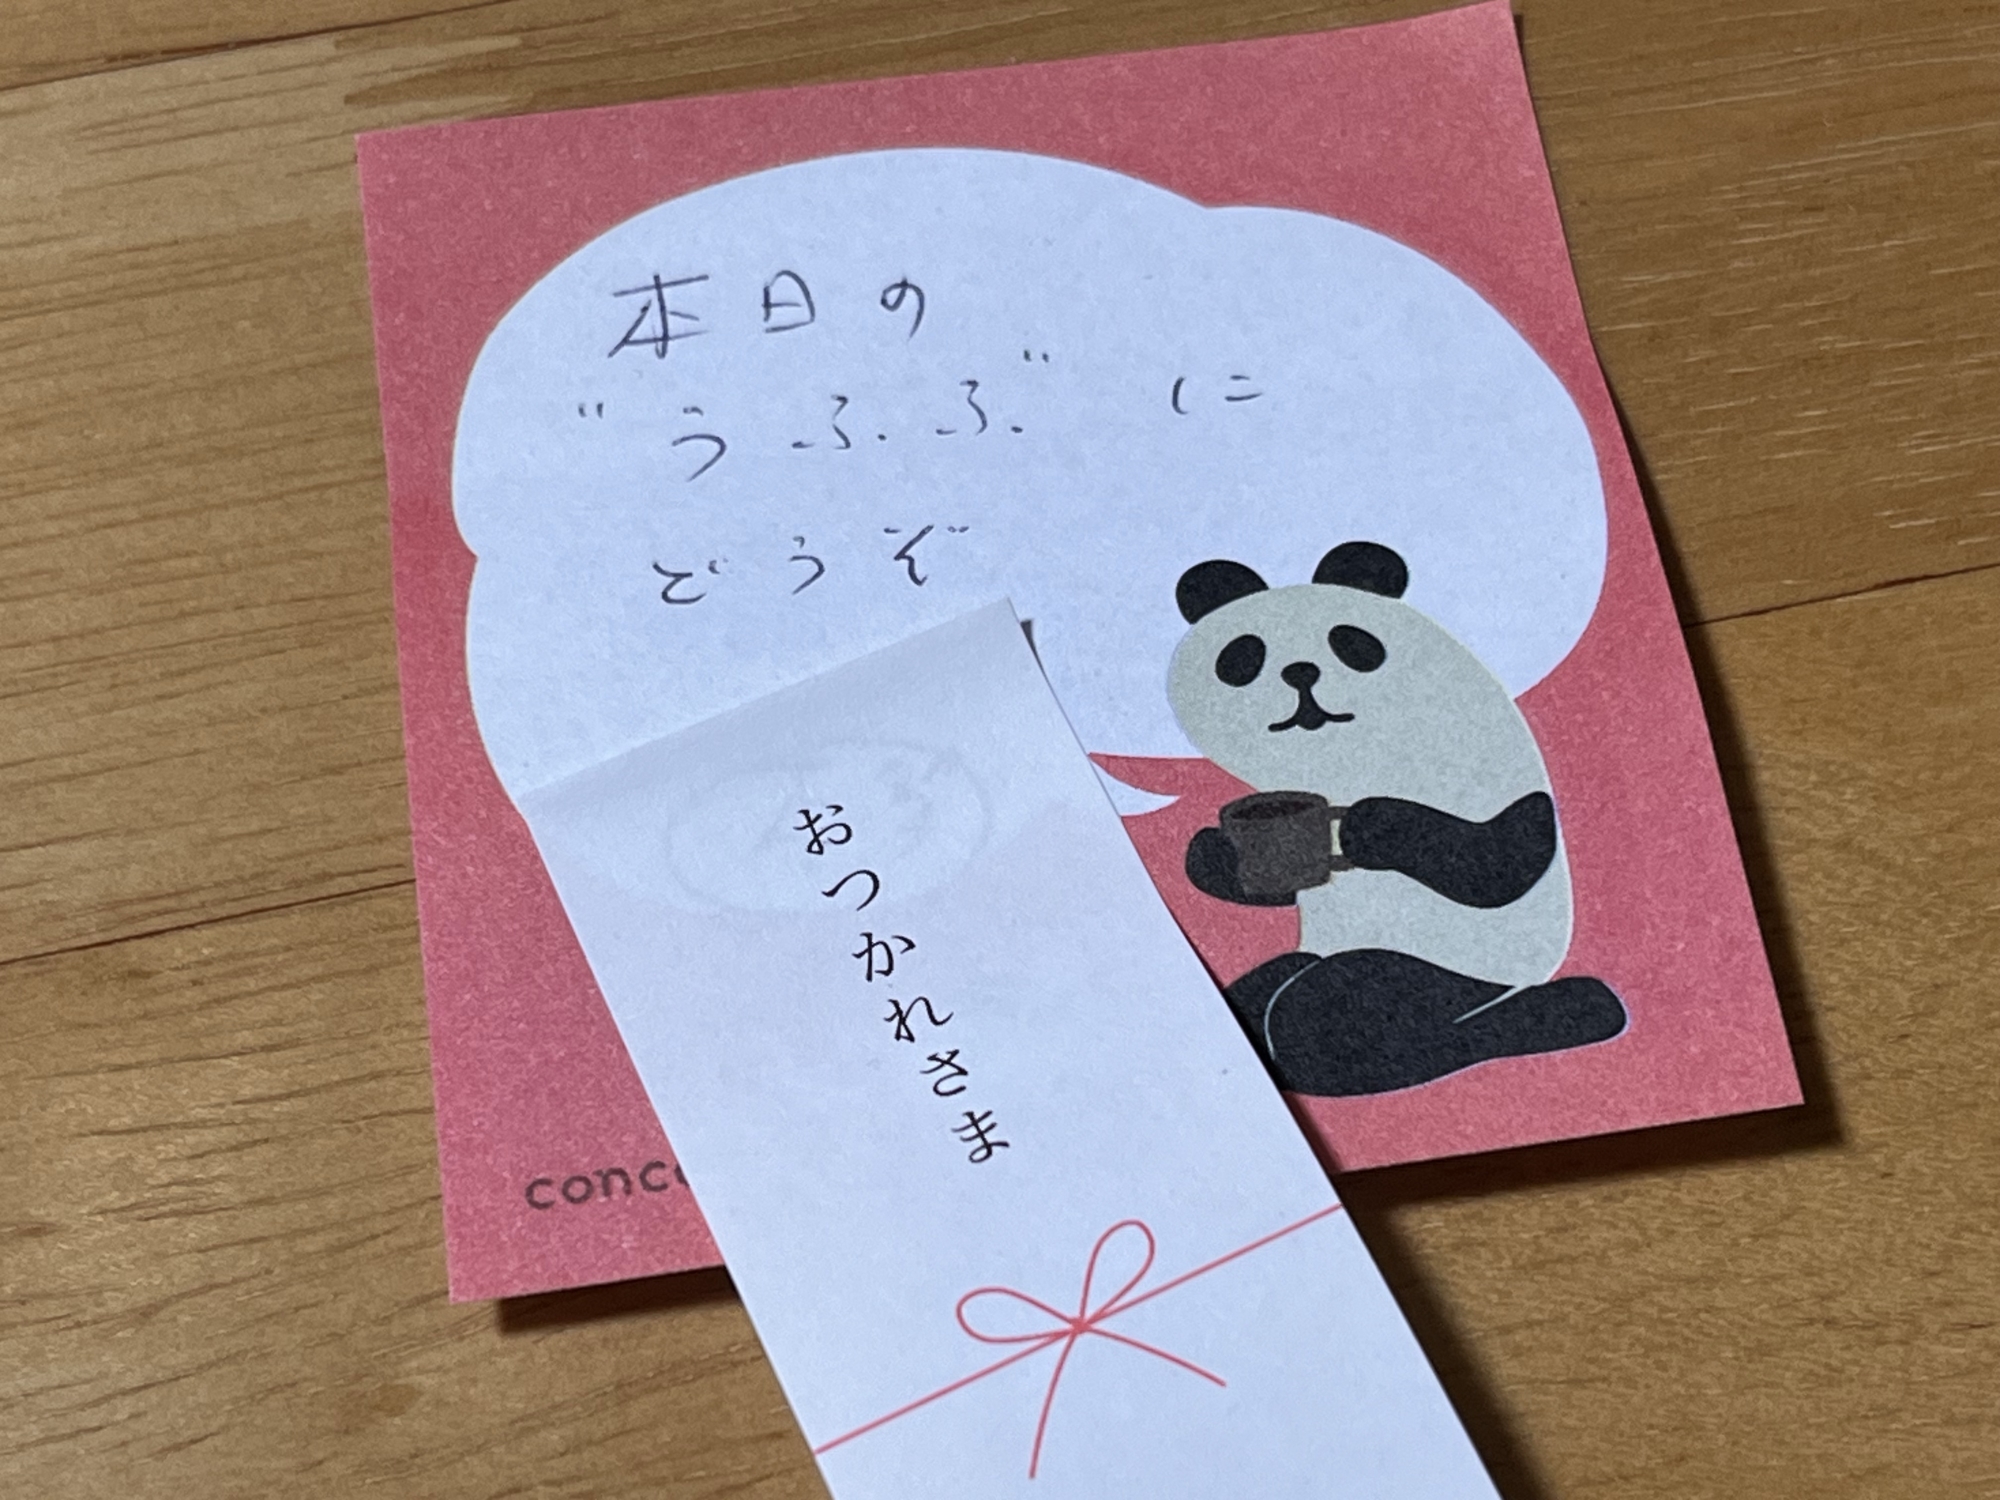 本日の
"うふふ"に
どうぞ
おつかれさま
conc